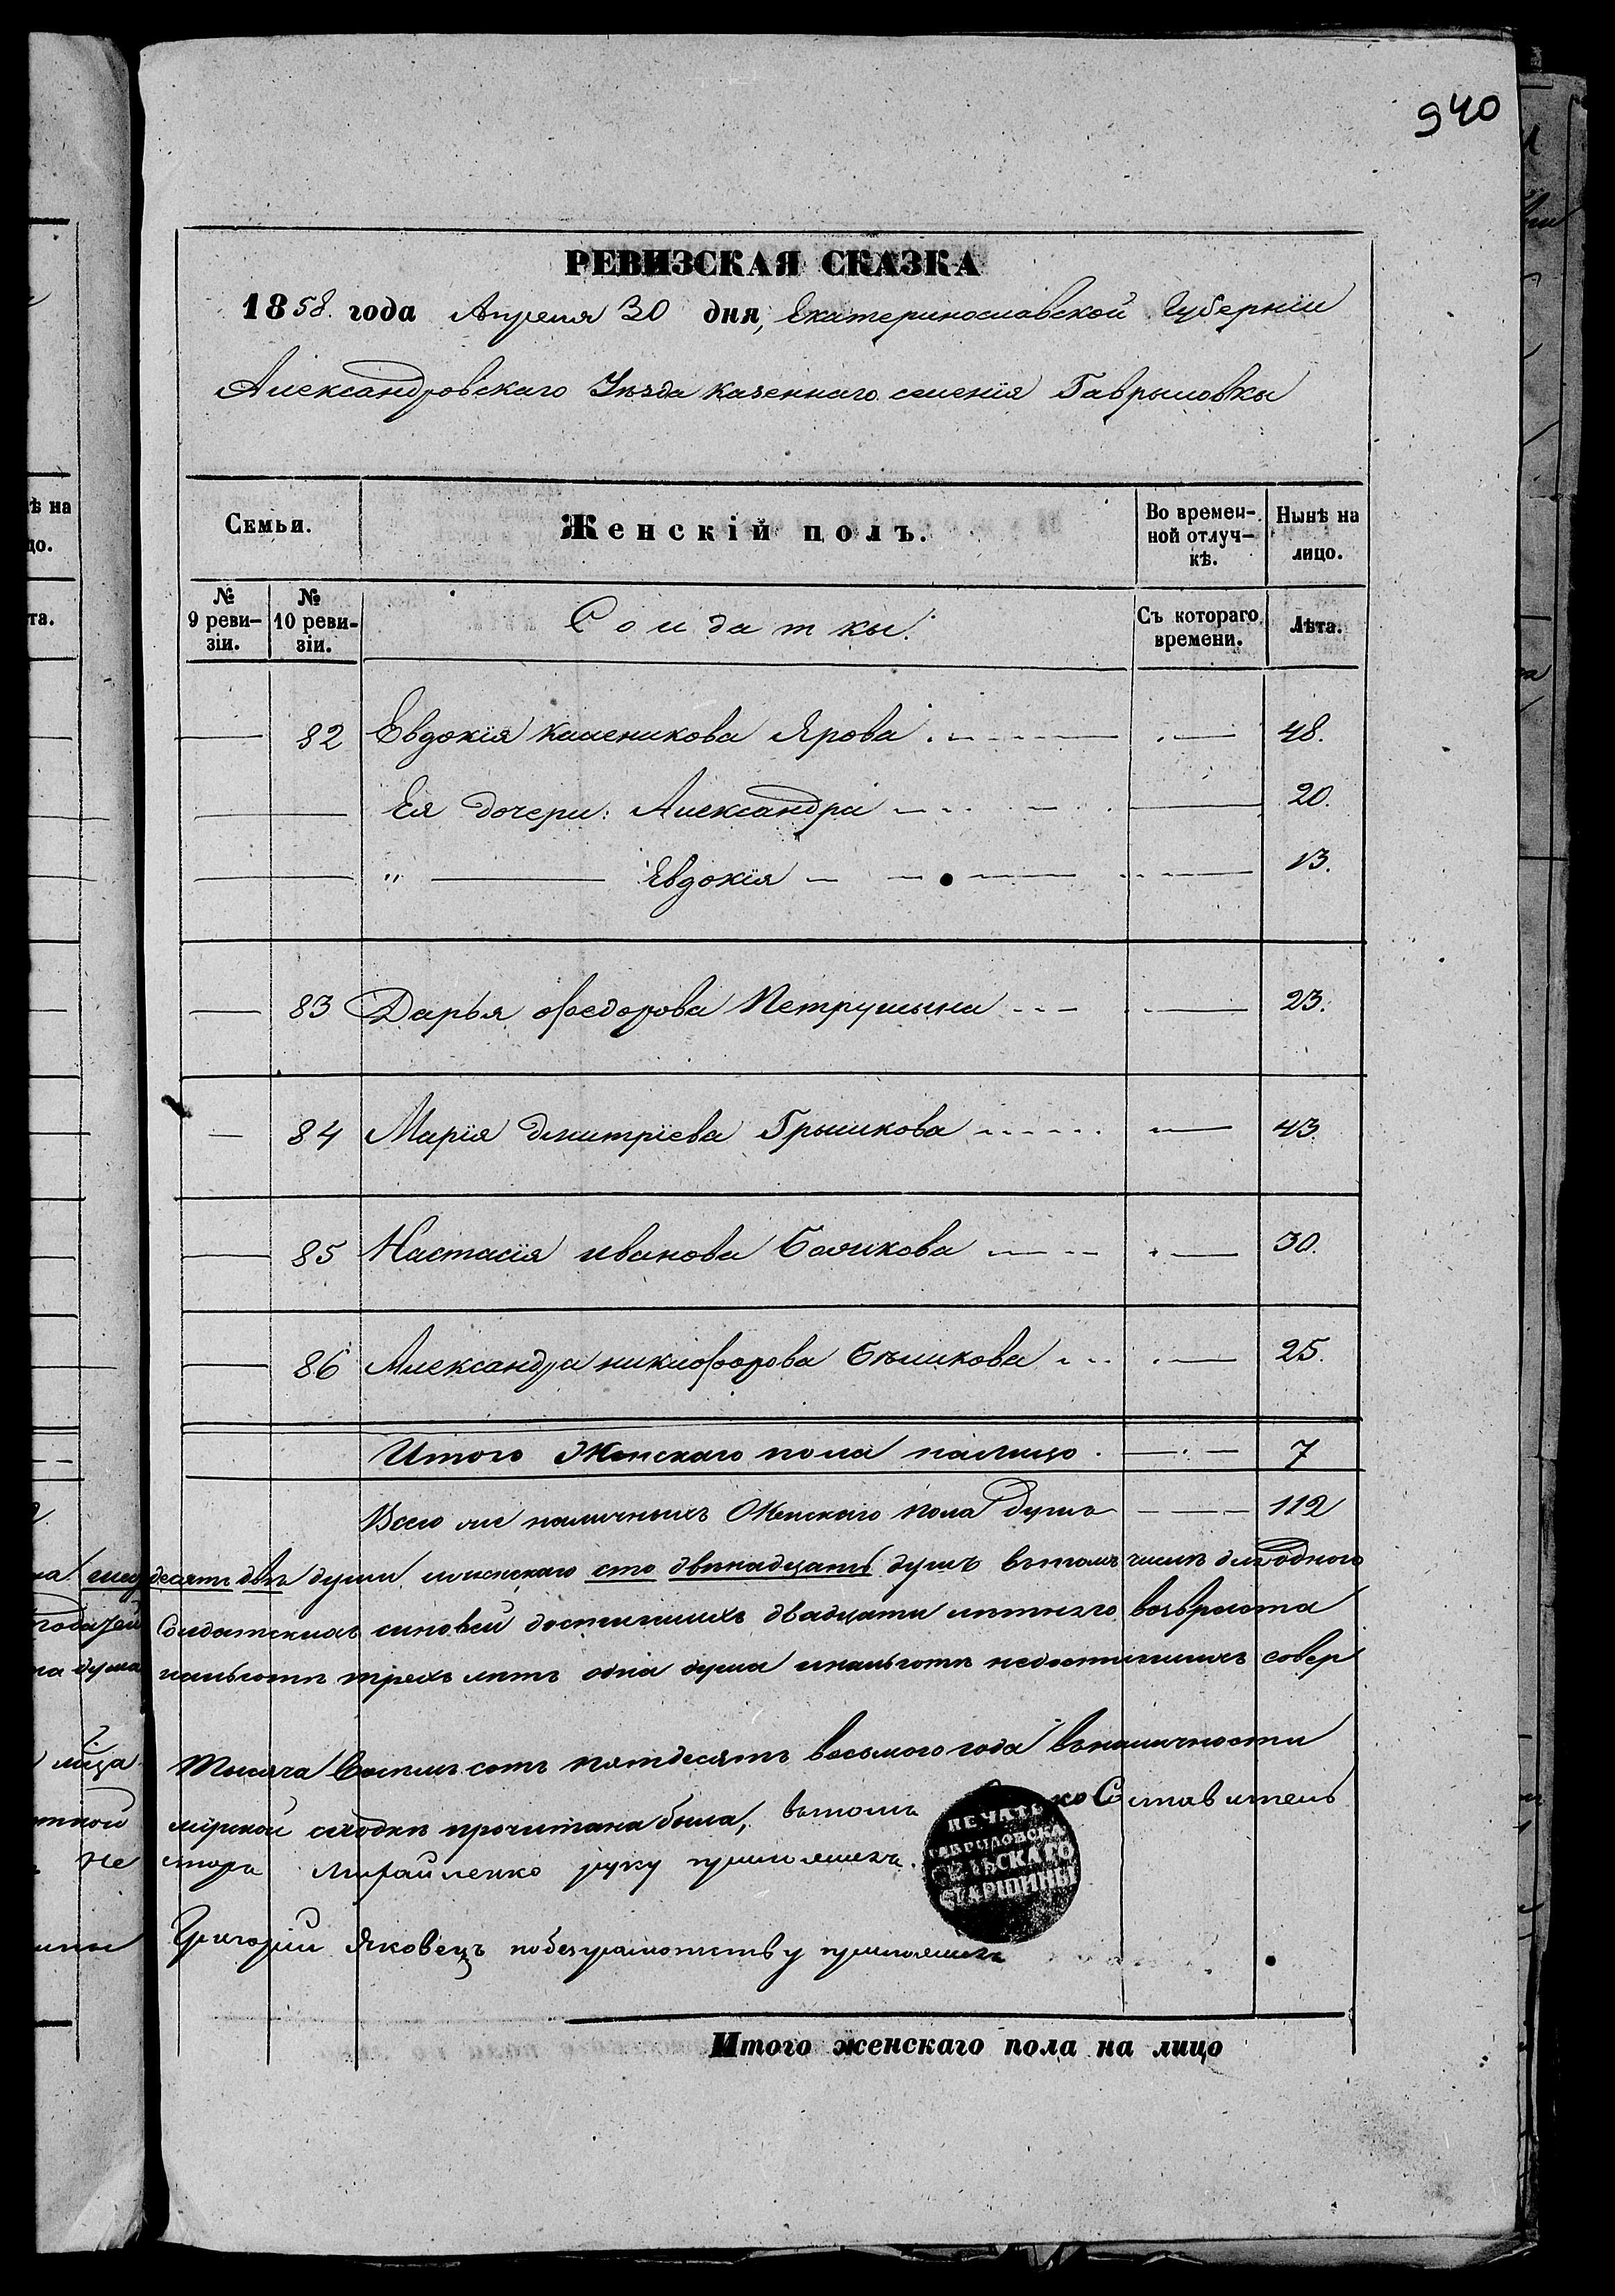 940
РЕВИЗСКАЯ СКАЗКА
1858. года Апреля 30 дня, Екатеринославской Губернїи
Александровскаго Уѣзда казеннаго селенїя Гаврыловкы
Семьи.
Женскій полъ.
Во времен-
ной отлуч-
кѣ.
Нынѣ на
лицо.
№
9 реви-
зіи.
№
10 реви-
зіи.
Солдаткы.
Съ котораго
времени.
Лѣта.
82 Евдокїя Каленикова Ярова 48.
Ея дочери: Александра 20.
" Евдокїя 13.
83 Дарья Федорова Петрушына 23.
84 Марїя Дмитрїева Грышкова 43.
85 Настасїя иванова 30.
86 Александра никифорова 25.
Итого Женскаго пола налицо 7
Всего же наличныхъ Женскаго пола Душъ 112
десятъ двѣ души, женскаго сто двѣнадцать душъ втомъ числѣ
Солдатскихъ синовей достигшихъ двадцати лѣтняго возвраста
нальготѣ трехъ лѣтъ одна душа инальготѣ недостигшихъ совер
тысяча восемь сотъ пятдесятъ восьмого года вналичности
мірской сходкѣ прочитана была, втомъ ко Составитель
Михайленко руку приложилъ.
Григорій Яковецъ побезграмотству приложилъ
ПЕЧАТЬ
ГАВРИЛОВСКА
СЕЛЬСКАГО
СТАРШИНЫ
Итого женскаго пола на лицо
ѣ на
цо.
та.